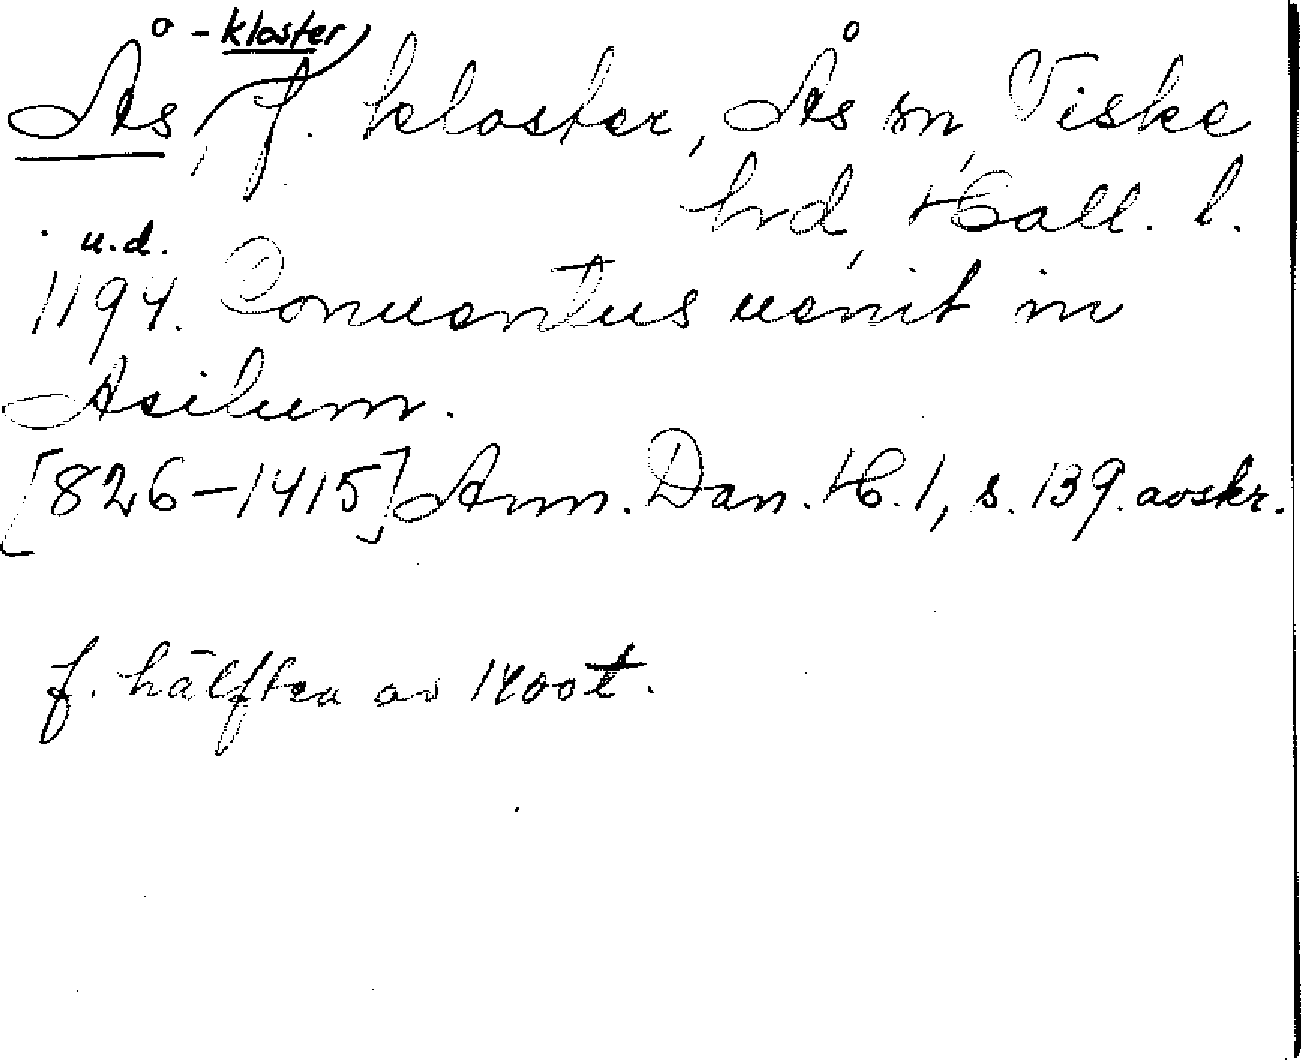 -kloster
Ås, f. kloster, Ås sn, Viske
hd, Hall. l.
u.d.
1194. Conuentus uenit in
Asilum.
[826-1415] Ann. Dan. H. 1, s. 139. avskr.
f. hälften av 1400t.